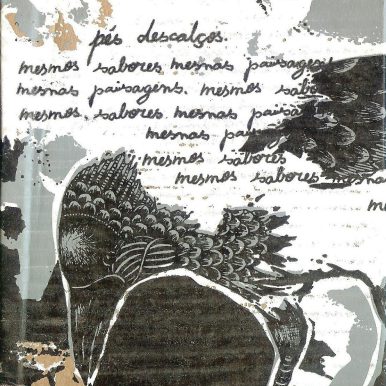 pés descalços.
mesmos sabores mesmas paisagens
mesmas paisagens. mesmos sabo
mesmos sabores. mesmas paisa
mesmas paisag
mesmos sabores
mesmos sabores mesmas
me